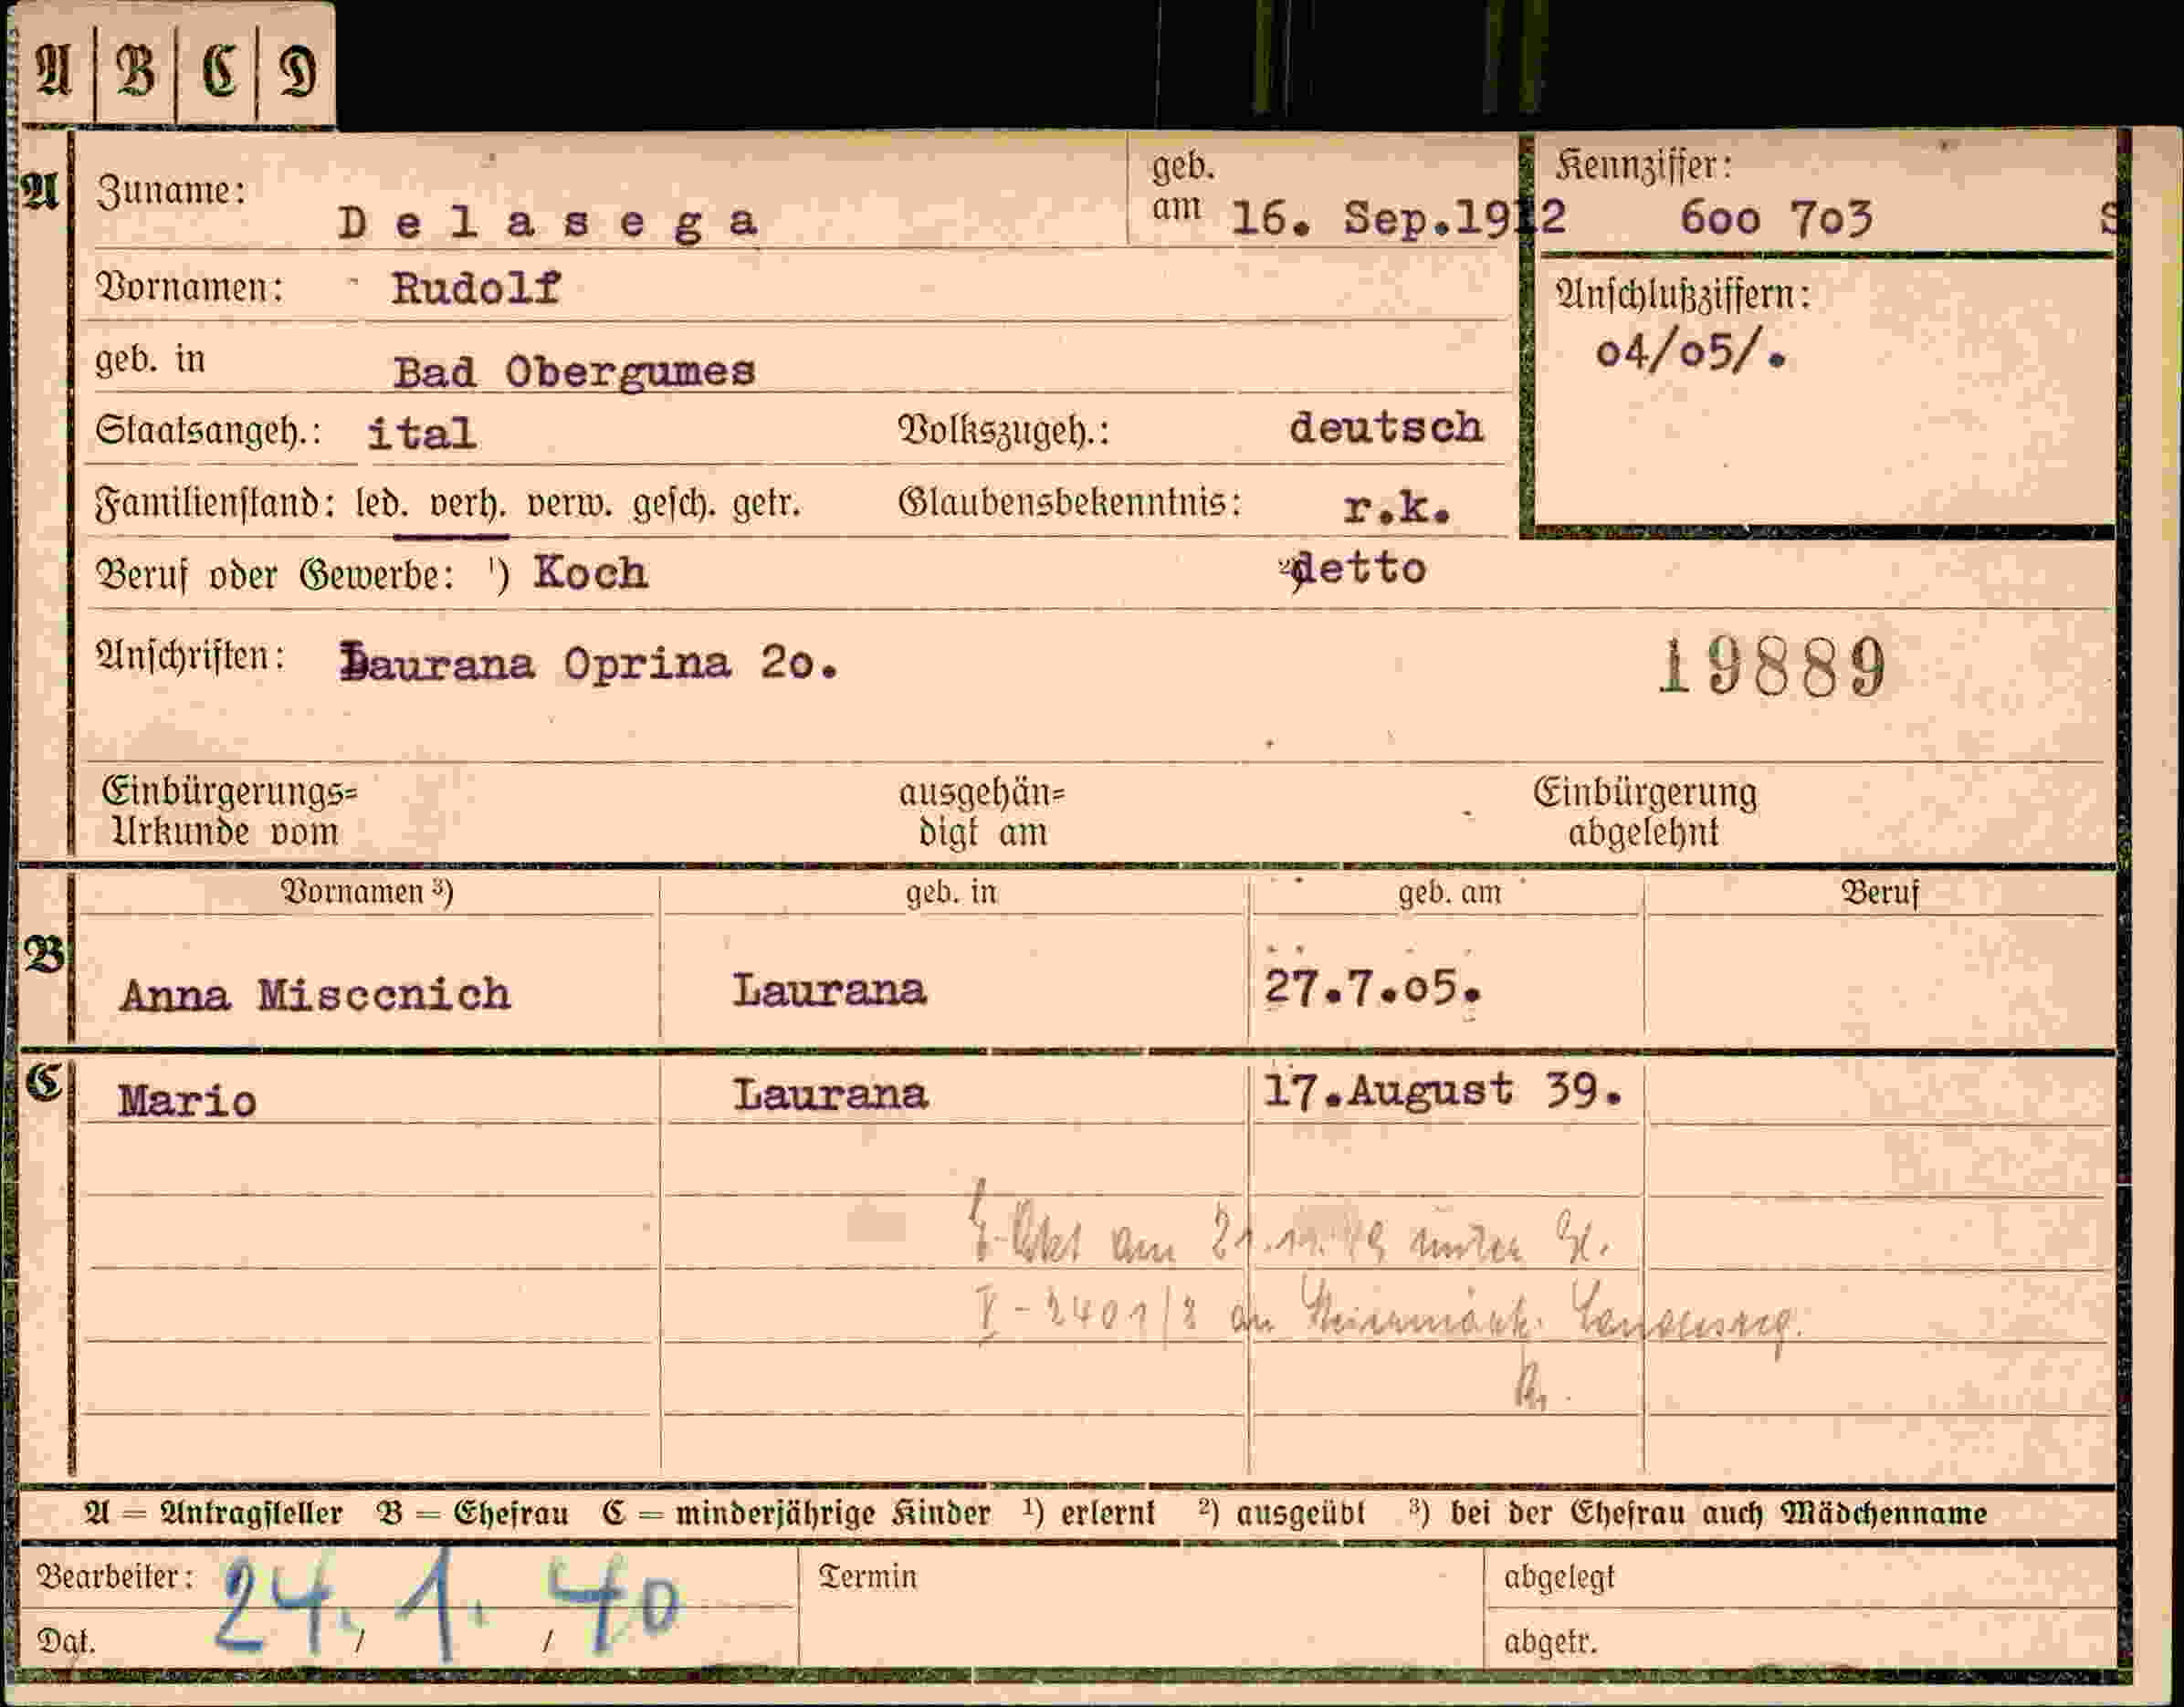 A B C D
A Zuname: Delasega geb. am 16. Sep.1912 Kennziffer: 6oo 7o3 S
Vornamen: Rudolf
Anschlußziffern: o4/o5/.
geb. in Bad Obergumes
Staatsangeh.: ital Volkszugeh.: deutsch
Familienstand: led. verh. verw. gesch. getr. Glaubensbekenntnis: r.k.
Beruf oder Gewerbe: ¹) Koch ²) detto
Anschriften: Laurana Oprina 2o. 19889
Einbürgerungs= ausgehän= Einbürgerung
Urkunde vom digt am abgelehnt
Vornamen ³) geb. in geb. am Beruf
B Anna Misccnich Laurana 27.7.o5.
C Mario Laurana 17.August 39.
Akt am 21.11. unter Zl.
V - 2401/2 an Steiermärk. Landesreg.
A = Antragsteller B = Ehefrau C = minderjährige Kinder ¹) erlernt ²) ausgeübt ³) bei der Ehefrau auch Mädchenname
Bearbeiter: Termin abgelegt
Dat. 24. / 1. / 40 abgetr.